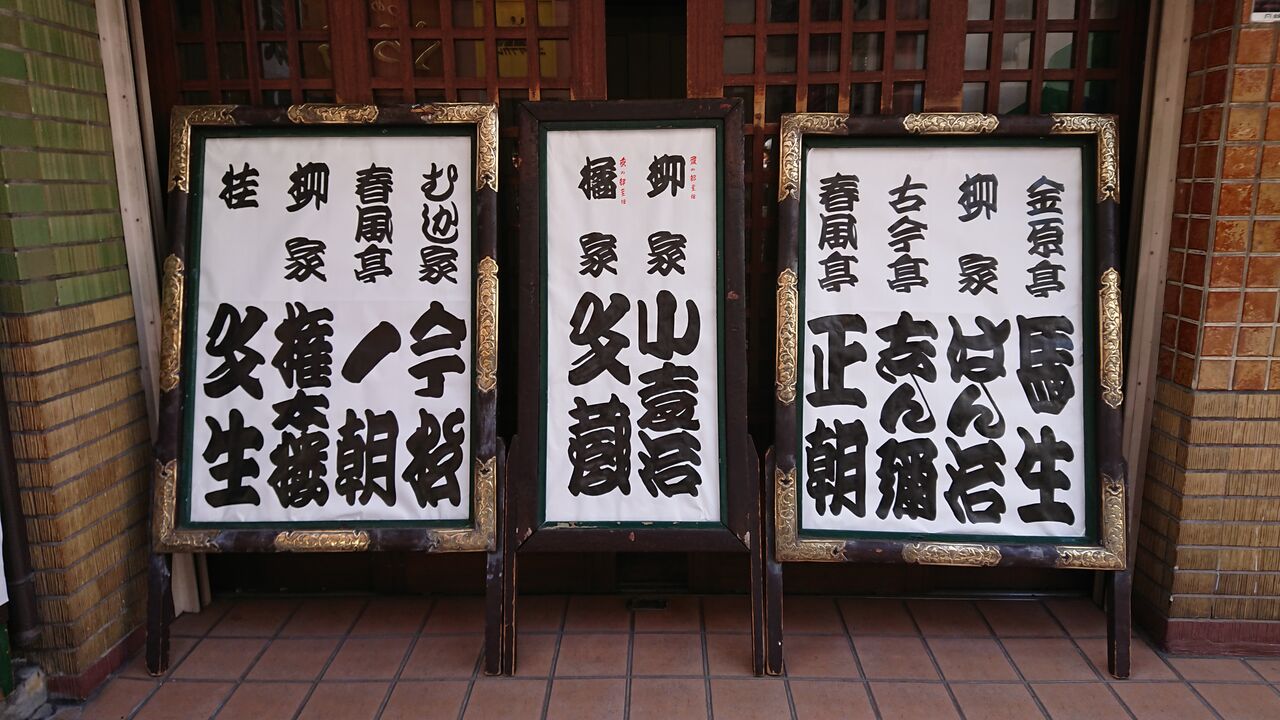 金原亭 馬生
柳家 はん治
古今亭 志ん彌
春風亭 正朝
昼の部主任
柳家 小袁治
夜の部主任
橘家 文蔵
むかし家 今松
春風亭 一朝
柳家 権太楼
桂 文生